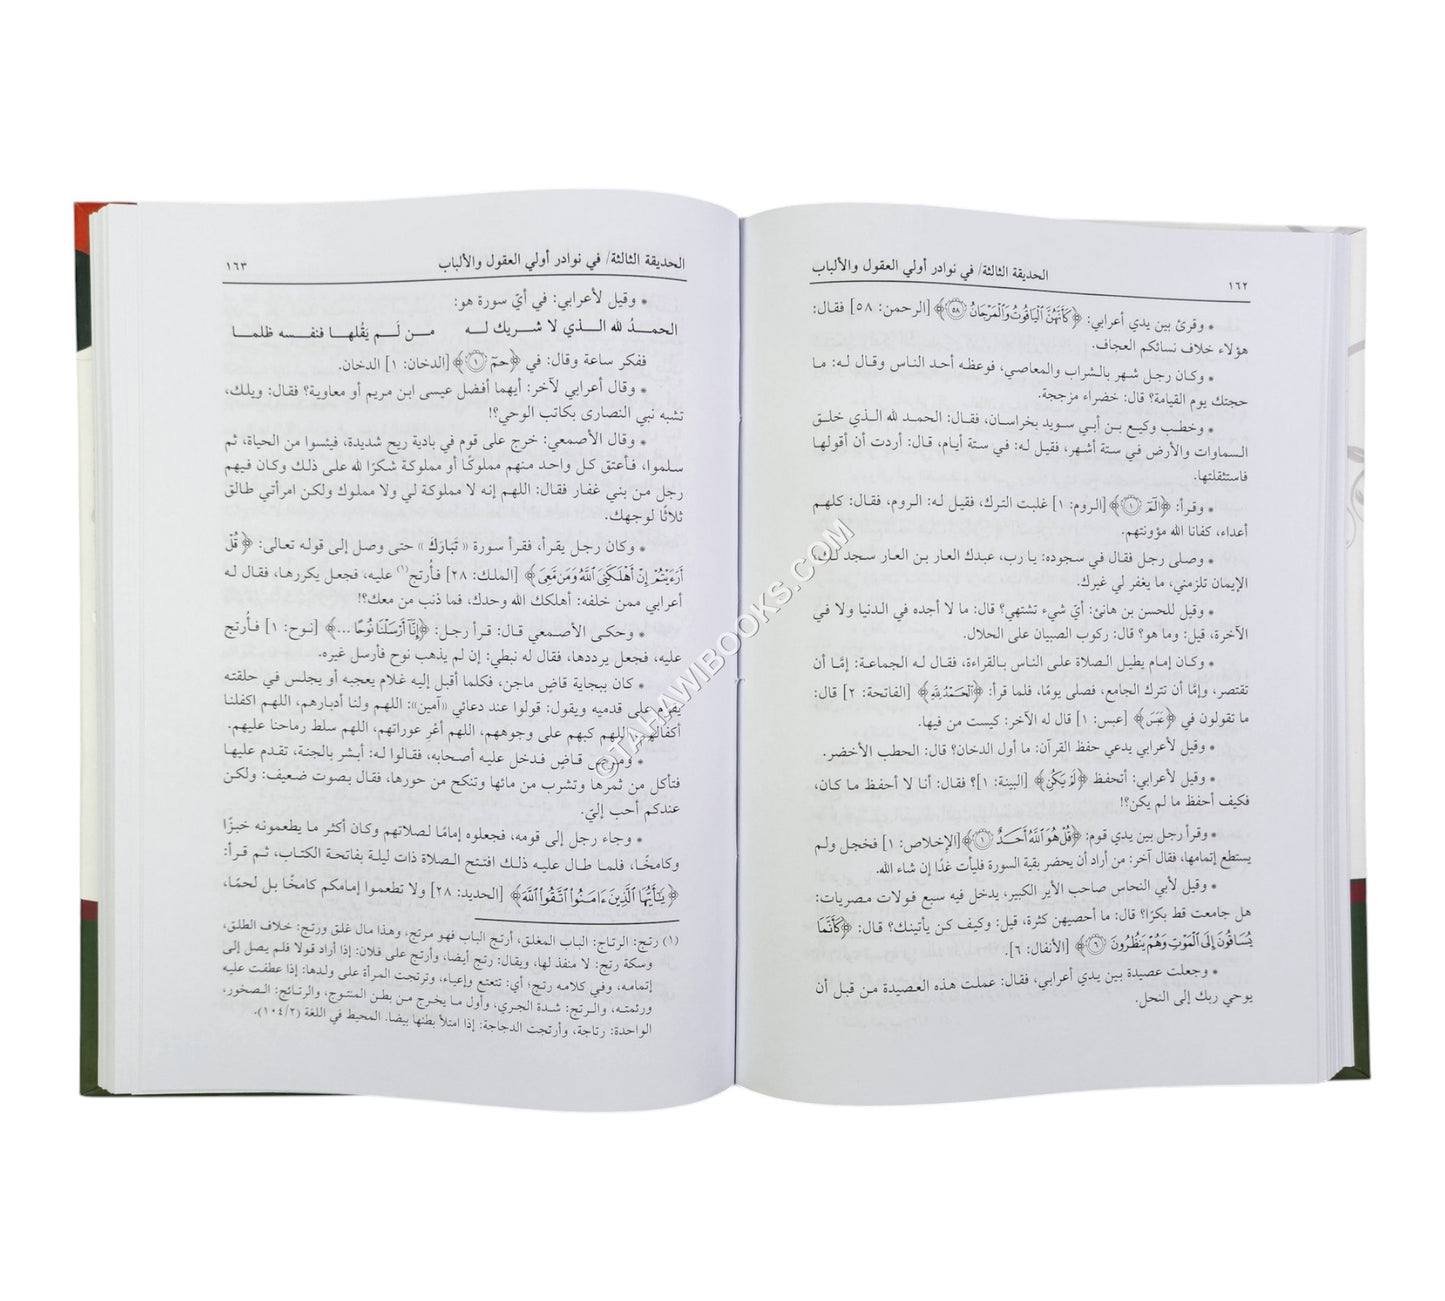 ١٦٢
الحديقة الثالثة/ في نوادر أولي العقول والألباب
* وقرئ بين يدي أعرابي: ﴿كَأَنَّهُنَّ الْيَاقُوتُ وَالْمَرْجَانُ ٥٨﴾ [الرحمن: ٥٨] فقال:
هؤلاء خلاف نسائكم العجاف.
* وكان رجل شهر بالشراب والمعاصي، فوعظه أحد الناس وقال له: ما
حجتك يوم القيامة؟ قال: خضراء مزججة.
* وخطب وكيع بن أبي سويد بخراسان، فقال: الحمد لله الذي خلق
السماوات والأرض في ستة أشهر، فقيل له: في ستة أيام، قال: أردت أن أقولها
فاستثقلتها.
* وقرأ: ﴿الٓمٓ ١﴾ [الروم: ١] غلبت الترك، فقيل له: الروم، فقال: كلهم
أعداء، كفانا الله مؤونتهم.
* وصلى رجل فقال في سجوده: يا رب، عبدك العار بن العار سجد لك،
الإيمان تلزمني، ما يغفر لي غيرك.
* وقيل للحسن بن هانئ: أيّ شيء تشتهي؟ قال: ما لا أجده في الدنيا ولا في
الآخرة، قيل: وما هو؟ قال: ركوب الصبيان على الحلال.
* وكان إمام يطيل الصلاة على الناس بالقراءة، فقال له الجماعة: إمَّا أن
تقتصر، وإمَّا أن تترك الجامع، فصلى يومًا، فلما قرأ: ﴿الْحَمْدُ لِلَّهِ﴾ [الفاتحة: ٢] قال:
ما تقولون في ﴿عَبَسَ﴾ [عبس: ١] قال له الآخر: كيست من فيها.
* وقيل لأعرابي يدعي حفظ القرآن: ما أول الدخان؟ قال: الحطب الأخضر.
* وقيل لأعرابي: أتحفظ ﴿لَمْ يَكُنِ﴾ [البينة: ١]؟ فقال: أنا لا أحفظ ما كان،
فكيف أحفظ ما لم يكن؟!
* وقرأ رجل بين يدي قوم: ﴿قُلْ هُوَ اللَّهُ أَحَدٌ ١﴾ [الإخلاص: ١] فخجل ولم
يستطع إتمامها، فقال آخر: من أراد أن يحضر بقية السورة فليأت غدًا إن شاء الله.
* وقيل لأبي النحاس صاحب الأير الكبير، يدخل فيه سبع فولات مصريات:
هل جامعت قط بكرًا؟ قال: ما أحصيهن كثرة، قيل: وكيف كن يأتينك؟ قال: ﴿كَأَنَّمَا
يُسَاقُونَ إِلَى الْمَوْتِ وَهُمْ يَنظُرُونَ ٦﴾ [الأنفال: ٦].
* وجعلت عصيدة بين يدي أعرابي، فقال: عملت هذه العصيدة من قبل أن
يوحي ربك إلى النحل.
الحديقة الثالثة/ في نوادر أولي العقول والألباب
١٦٣
* وقيل لأعرابي: في أيّ سورة هو:
الحمدُ لله الذي لا شريك له من لَم يَقُلها فنفسه ظلما
ففكر ساعة وقال: في ﴿حمٓ ١﴾ [الدخان: ١] الدخان.
* وقال أعرابي لآخر: أيهما أفضل عيسى ابن مريم أو معاوية؟ فقال: ويلك،
تشبه نبي النصارى بكاتب الوحي؟!
* وقال الأصمعي: خرج على قوم في بادية ريح شديدة، فيئسوا من الحياة، ثم
سلموا، فأعتق كل واحد منهم مملوكًا أو مملوكة شكرًا لله على ذلك وكان فيهم
رجل من بني غفار فقال: اللهم إنه لا مملوكة لي ولا مملوك ولكن امرأتي طالق
ثلاثًا لوجهك.
* وكان رجل يقرأ، فقرأ سورة « تَبَارَكَ » حتى وصل إلى قوله تعالى: ﴿قُلْ
أَرَءَيْتُمْ إِنْ أَهْلَكَنِيَ اللَّهُ وَمَن مَّعِيَ﴾ [الملك: ٢٨] فأُرتج(١) عليه، فجعل يكررها، فقال له
أعرابي ممن خلفه: أهلكك الله وحدك، فما ذنب من معك؟!
* وحكى الأصمعي قال: قرأ رجل: ﴿إِنَّا أَرْسَلْنَا نُوحًا ...﴾ [نوح: ١] فأرتج
عليه، فجعل يرددها، فقال له نبطي: إن لم يذهب نوح فأرسل غيره.
* كان ببجاية قاضٍ ماجن، فكلما أقبل إليه غلام يعجبه أو يجلس في حلقته
يقوم على قدميه ويقول: قولوا عند دعائي «آمين»: اللهم ولنا أدبارهم، اللهم اكفلنا
أكفالهم، اللهم كبهم على وجوههم، اللهم أعْر عوراتهم، اللهم سلط رماحنا عليهم.
* ومرض قاضٍ فدخل عليه أصحابه، فقالوا له: أبشر بالجنة، تقدم عليها
فتأكل من ثمرها وتشرب من مائها وتنكح من حورها، فقال بصوت ضعيف: ولكن
عندكم أحب إليّ.
* وجاء رجل إلى قومه، فجعلوه إمامًا لصلاتهم وكان أكثر ما يطعمونه خبزًا
وكامخًا، فلما طال عليه ذلك افتتح الصلاة ذات ليلة بفاتحة الكتاب، ثم قرأ:
﴿يَٰٓأَيُّهَا الَّذِينَ ءَامَنُوا اتَّقُوا اللَّهَ﴾ [الحديد: ٢٨] ولا تطعموا إمامكم كامخًا بل لحمًا،
(١) رتج: الرتاج: الباب المغلق، أرتج الباب فهو مرتج، وهذا مال غلق ورتج: خلاف الطلق،
وسكة رتج: لا منفذ لها، ويقال: رتج أيضا، وأرتج على فلان: إذا أراد قولا فلم يصل إلى
إتمامه، وفي كلامه رتج؛ أي: تتعتع وإعياء، وترتجت المرأة على ولدها: إذا عطفت عليه
ورئمته، والرتج: شدة الجري، وأول ما يخرج من بطن المنتوج، والرتائج: الصخور،
الواحدة: رتاجة، وأرتجت الدجاجة: إذا امتلأ بطنها بيضا. المحيط في اللغة (١٠٤/٢).
©TAHAWIBOOKS.COM